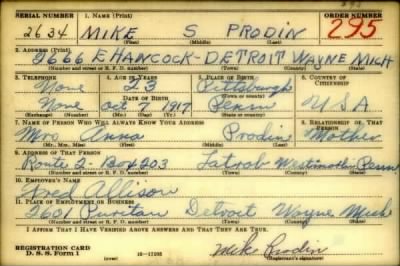 SERIAL NUMBER 1. NAME (Print) ORDER NUMBER
2634 MIKE S PRODIN 295
(First) (Middle) (Last)
2. ADDRESS (Print)
2666 E HANCOCK - DETROIT WAYNE MICH
(Number and street or R. F. D. number) (Town) (County) (State)
3. TELEPHONE 4. AGE IN YEARS 5. PLACE OF BIRTH 6. COUNTRY OF CITIZENSHIP
None 23 Pittsburgh
(Town or county)
DATE OF BIRTH
None Oct 7 1917 Penn U S A
(Exchange) (Number) (Mo.) (Day) (Yr.) (State or country)
7. NAME OF PERSON WHO WILL ALWAYS KNOW YOUR ADDRESS 8. RELATIONSHIP OF THAT PERSON
Mrs Anna Prodin Mother
(Mr., Mrs., Miss) (First) (Middle) (Last)
9. ADDRESS OF THAT PERSON
Route 2 - Box 203 Latrob Penn
(Number and street or R. F. D. number) (Town) (County) (State)
10. EMPLOYER'S NAME
Fred Allison
11. PLACE OF EMPLOYMENT OR BUSINESS
Puritan Detroit Wayne Mich
(Number and street or R. F. D. number) (Town) (County) (State)
I AFFIRM THAT I HAVE VERIFIED ABOVE ANSWERS AND THAT THEY ARE TRUE.
REGISTRATION CARD
D. S. S. Form 1 16-17105 Mike Prodin
(Registrant's signature)